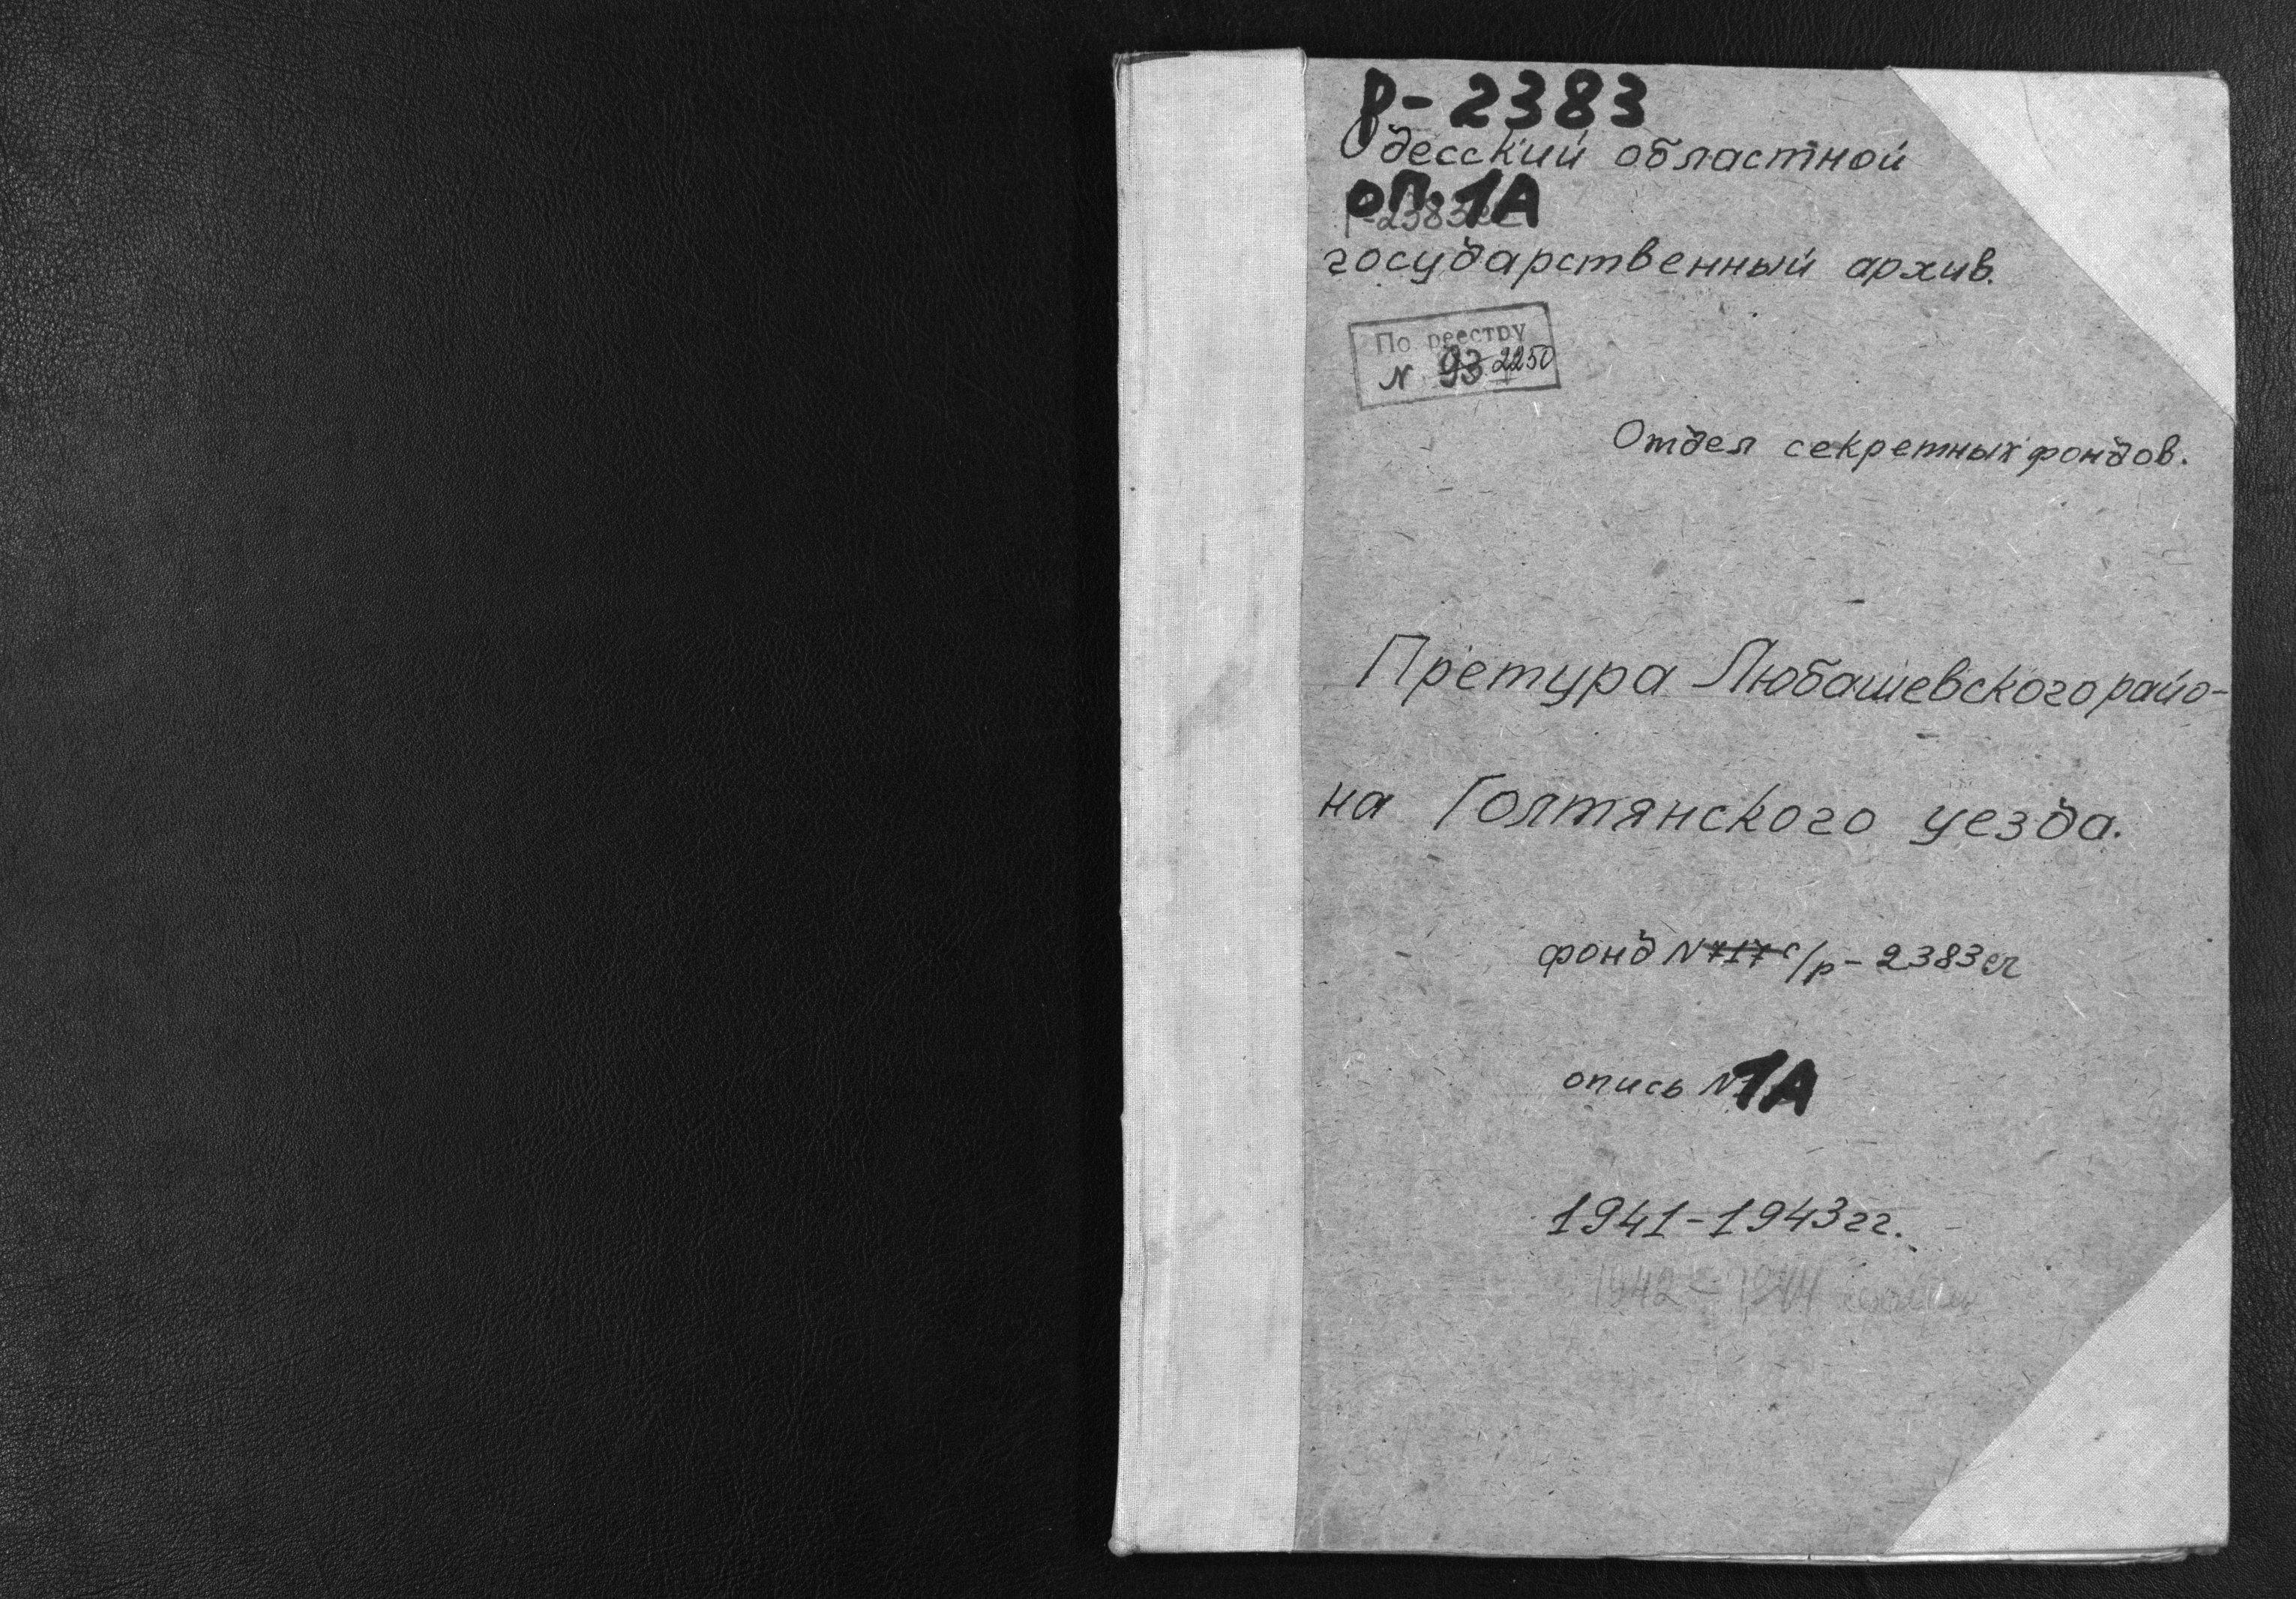 Р-2383
Одесский областной
оп. 1А
Р-2383
государственный архив.
По реестру
N 93 2250
Отдел секретных фондов.
Претура Любашевского райо-
на Голтянского уезда.
фонд N 717с/р-2383
опись N 1А
1941-1943гг.
1942-1944